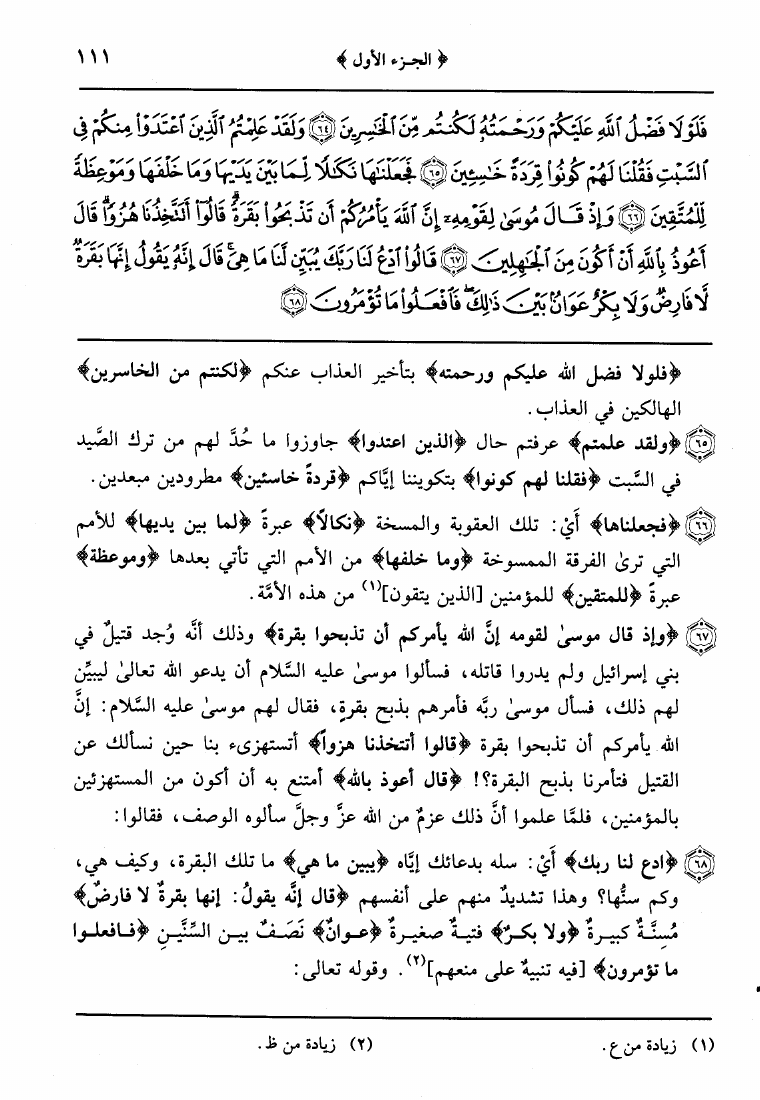 ﴿ الجزء الأول ﴾ ١١١
فَلَوْلَا فَضْلُ ٱللَّهِ عَلَيْكُمْ وَرَحْمَتُهُۥ لَكُنتُم مِّنَ ٱلْخَٰسِرِينَ ٦٤ وَلَقَدْ عَلِمْتُمُ ٱلَّذِينَ ٱعْتَدَوْا۟ مِنكُمْ فِى
ٱلسَّبْتِ فَقُلْنَا لَهُمْ كُونُوا۟ قِرَدَةً خَٰسِـِٔينَ ٦٥ فَجَعَلْنَٰهَا نَكَٰلًا لِّمَا بَيْنَ يَدَيْهَا وَمَا خَلْفَهَا وَمَوْعِظَةً
لِّلْمُتَّقِينَ ٦٦ وَإِذْ قَالَ مُوسَىٰ لِقَوْمِهِۦٓ إِنَّ ٱللَّهَ يَأْمُرُكُمْ أَن تَذْبَحُوا۟ بَقَرَةً ۖ قَالُوٓا۟ أَتَتَّخِذُنَا هُزُوًا ۖ قَالَ
أَعُوذُ بِٱللَّهِ أَنْ أَكُونَ مِنَ ٱلْجَٰهِلِينَ ٦٧ قَالُوا۟ ٱدْعُ لَنَا رَبَّكَ يُبَيِّن لَّنَا مَا هِىَ ۚ قَالَ إِنَّهُۥ يَقُولُ إِنَّهَا بَقَرَةٌ
لَّا فَارِضٌ وَلَا بِكْرٌ عَوَانٌۢ بَيْنَ ذَٰلِكَ ۖ فَٱفْعَلُوا۟ مَا تُؤْمَرُونَ ٦٨
﴿فلولا فضل الله عليكم ورحمته﴾ بتأخير العذاب عنكم ﴿لكنتم من الخاسرين﴾
الهالكين في العذاب.
٦٥ ﴿ولقد علمتم﴾ عرفتم حال ﴿الذين اعتدوا﴾ جاوزوا ما حُدَّ لهم من ترك الصَّيد
في السَّبت ﴿فقلنا لهم كونوا﴾ بتكويننا إيَّاكم ﴿قردةً خاسئين﴾ مطرودين مبعدين.
٦٦ ﴿فجعلناها﴾ أَيْ: تلك العقوبة والمسخة ﴿نكالاً﴾ عبرةً ﴿لما بين يديها﴾ للأمم
التي ترىٰ الفرقة الممسوخة ﴿وما خلفها﴾ من الأمم التي تأتي بعدها ﴿وموعظة﴾
عبرةً ﴿للمتقين﴾ للمؤمنين [الذين يتقون](١) من هذه الأمَّة.
٦٧ ﴿وإذ قال موسىٰ لقومه إنَّ الله يأمركم أن تذبحوا بقرة﴾ وذلك أنَّه وُجد قتيلٌ في
بني إسرائيل ولم يدروا قاتله، فسألوا موسىٰ عليه السَّلام أن يدعو الله تعالىٰ ليبيِّن
لهم ذلك، فسأل موسىٰ ربَّه فأمرهم بذبح بقرةٍ، فقال لهم موسىٰ عليه السَّلام: إنَّ
الله يأمركم أن تذبحوا بقرة ﴿قالوا أتتخذنا هزواً﴾ أتستهزىء بنا حين نسألك عن
القتيل فتأمرنا بذبح البقرة؟! ﴿قال أعوذ بالله﴾ أمتنع به أن أكون من المستهزئين
بالمؤمنين، فلمَّا علموا أنَّ ذلك عزمٌ من الله عزَّ وجلَّ سألوه الوصف، فقالوا:
٦٨ ﴿ادع لنا ربك﴾ أَيْ: سله بدعائك إيَّاه ﴿يبين ما هي﴾ ما تلك البقرة، وكيف هي،
وكم سنُّها؟ وهذا تشديدٌ منهم على أنفسهم ﴿قال إنَّه يقولُ: إنها بقرةٌ لا فارضٌ﴾
مُسِنَّةٌ كبيرةٌ ﴿ولا بكرٌ﴾ فتيةٌ صغيرةٌ ﴿عوانٌ﴾ نَصَفٌ بين السِّنَّينِ ﴿فافعلوا
ما تؤمرون﴾ [فيه تنبيهٌ على منعهم](٢). وقوله تعالى:
(١) زيادة من ع. (٢) زيادة من ظ.